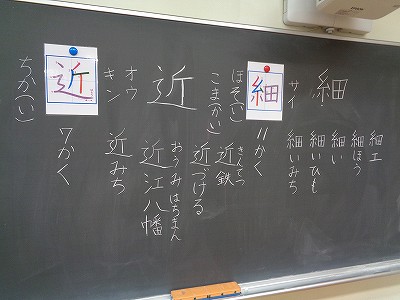 細
サイ
細
ほそ(い)
こま(かい)
11かく
細工
細ほう
細い
細いひも
細いみち
近
オウ
キン
近
ちか(い)
7かく
きんてつ
近鉄
近づける
おうみはちまん
近江八幡
近みち